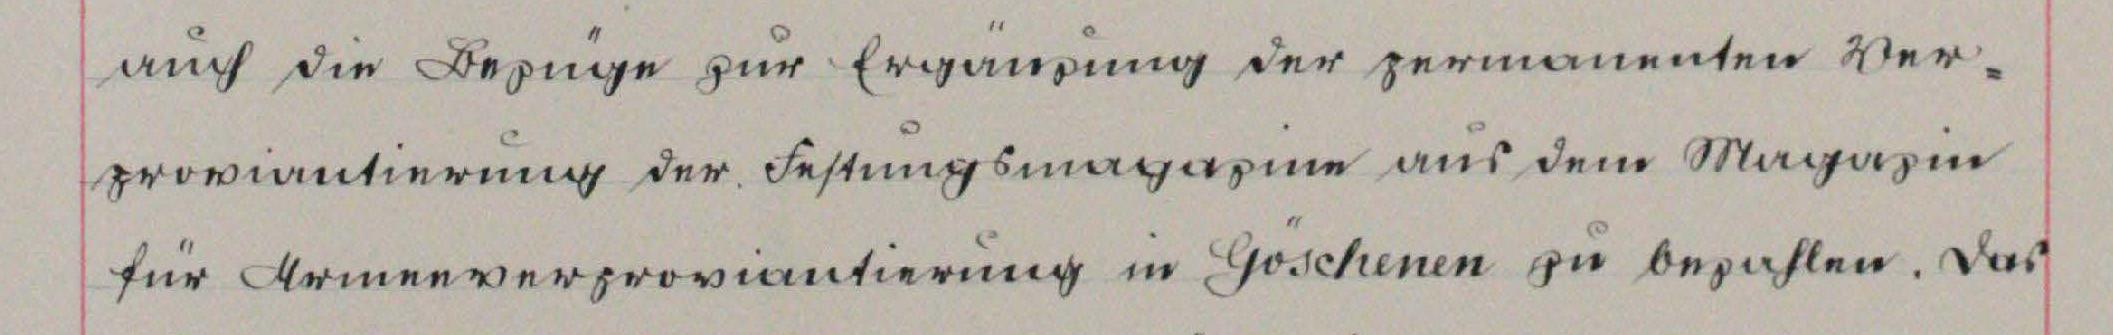 auch die Bezüge zur Ergänzung der permanenten Ver-
proviantierung der Festungsmagazine aus dem Magazin
für Armeeverproviantierung in Göschenen zu bezahlen. Das